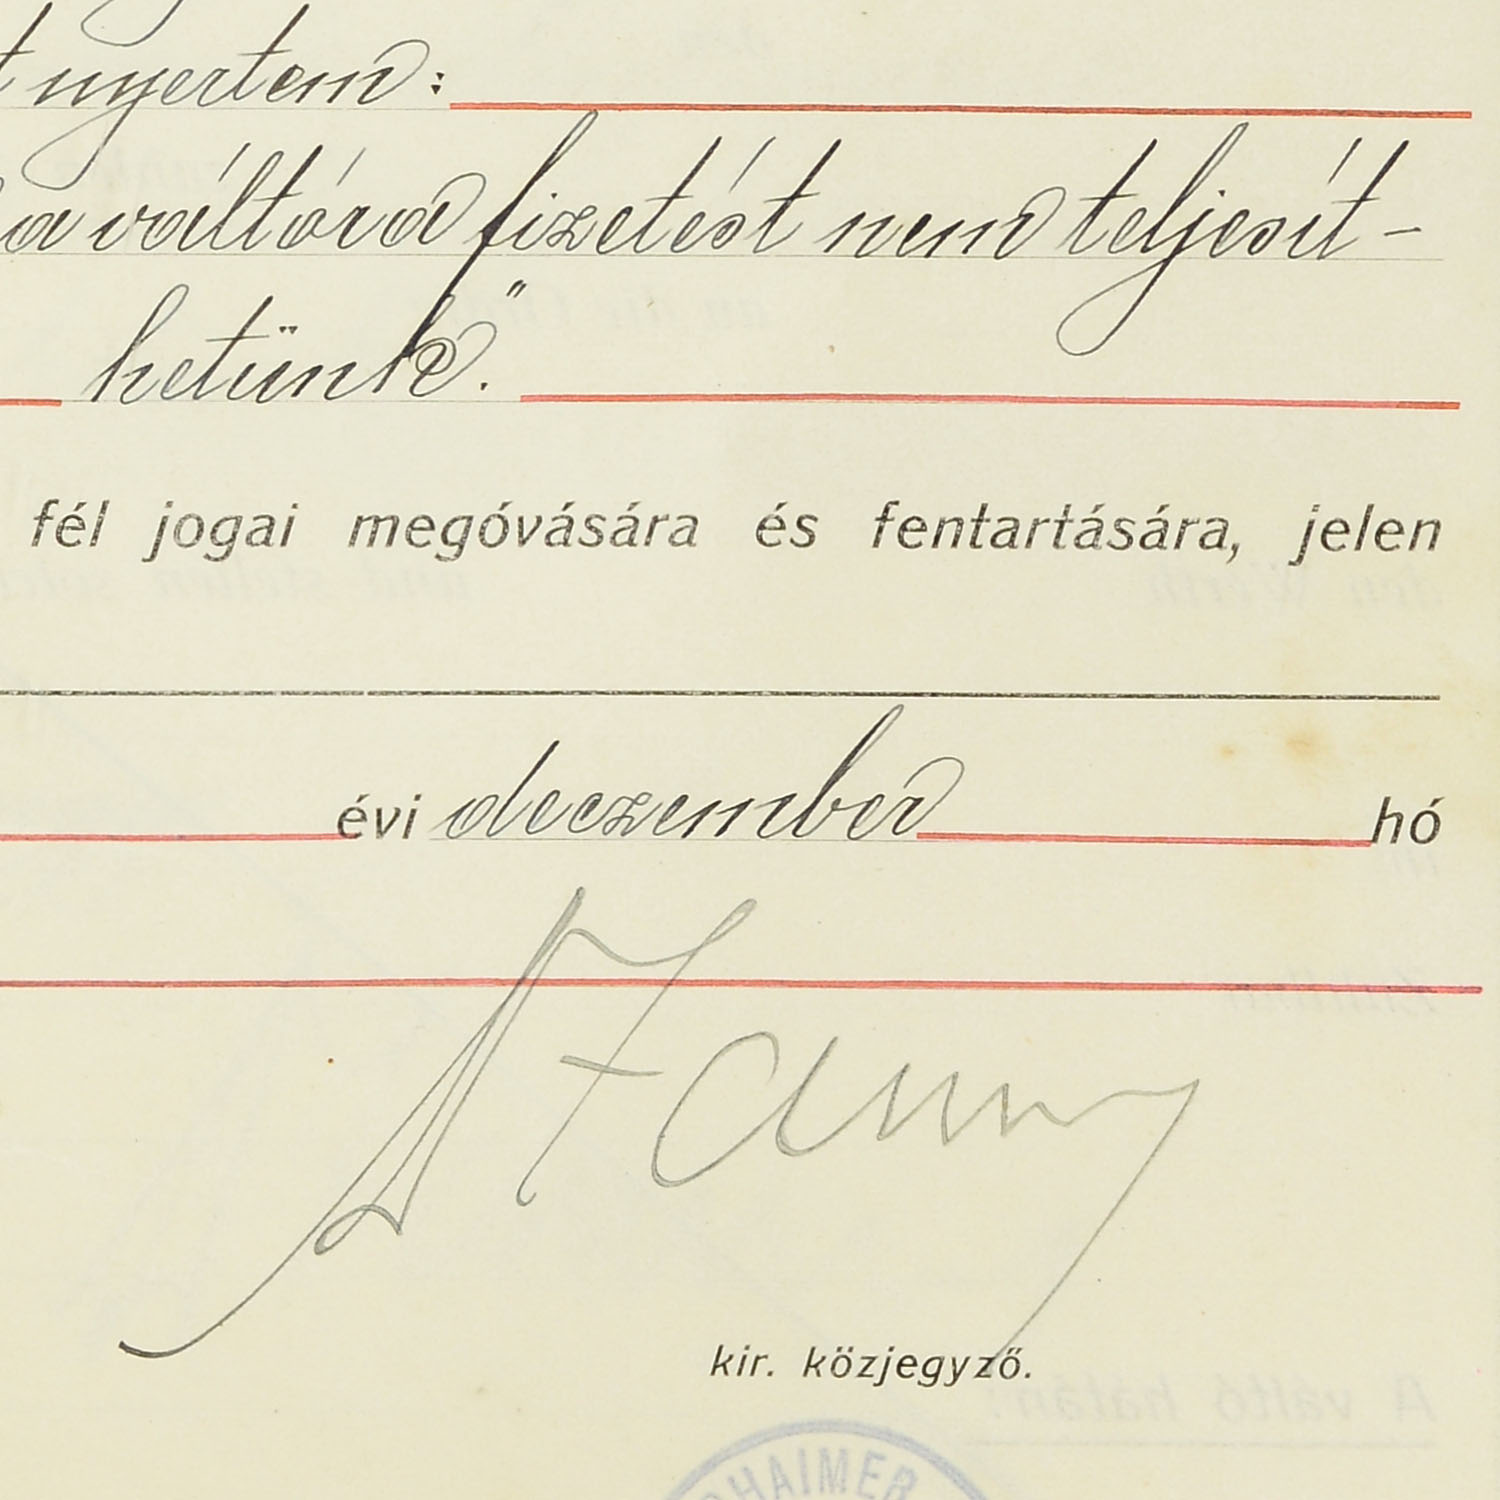 nyertem:
a váltóra fizetést nem teljesít-
hetünk."
fél jogai megóvására és fentartására, jelen
évi deczember hó
kir. közjegyző.